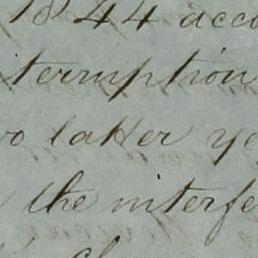 1844 acco
terruption
wo latter ye
the interfe